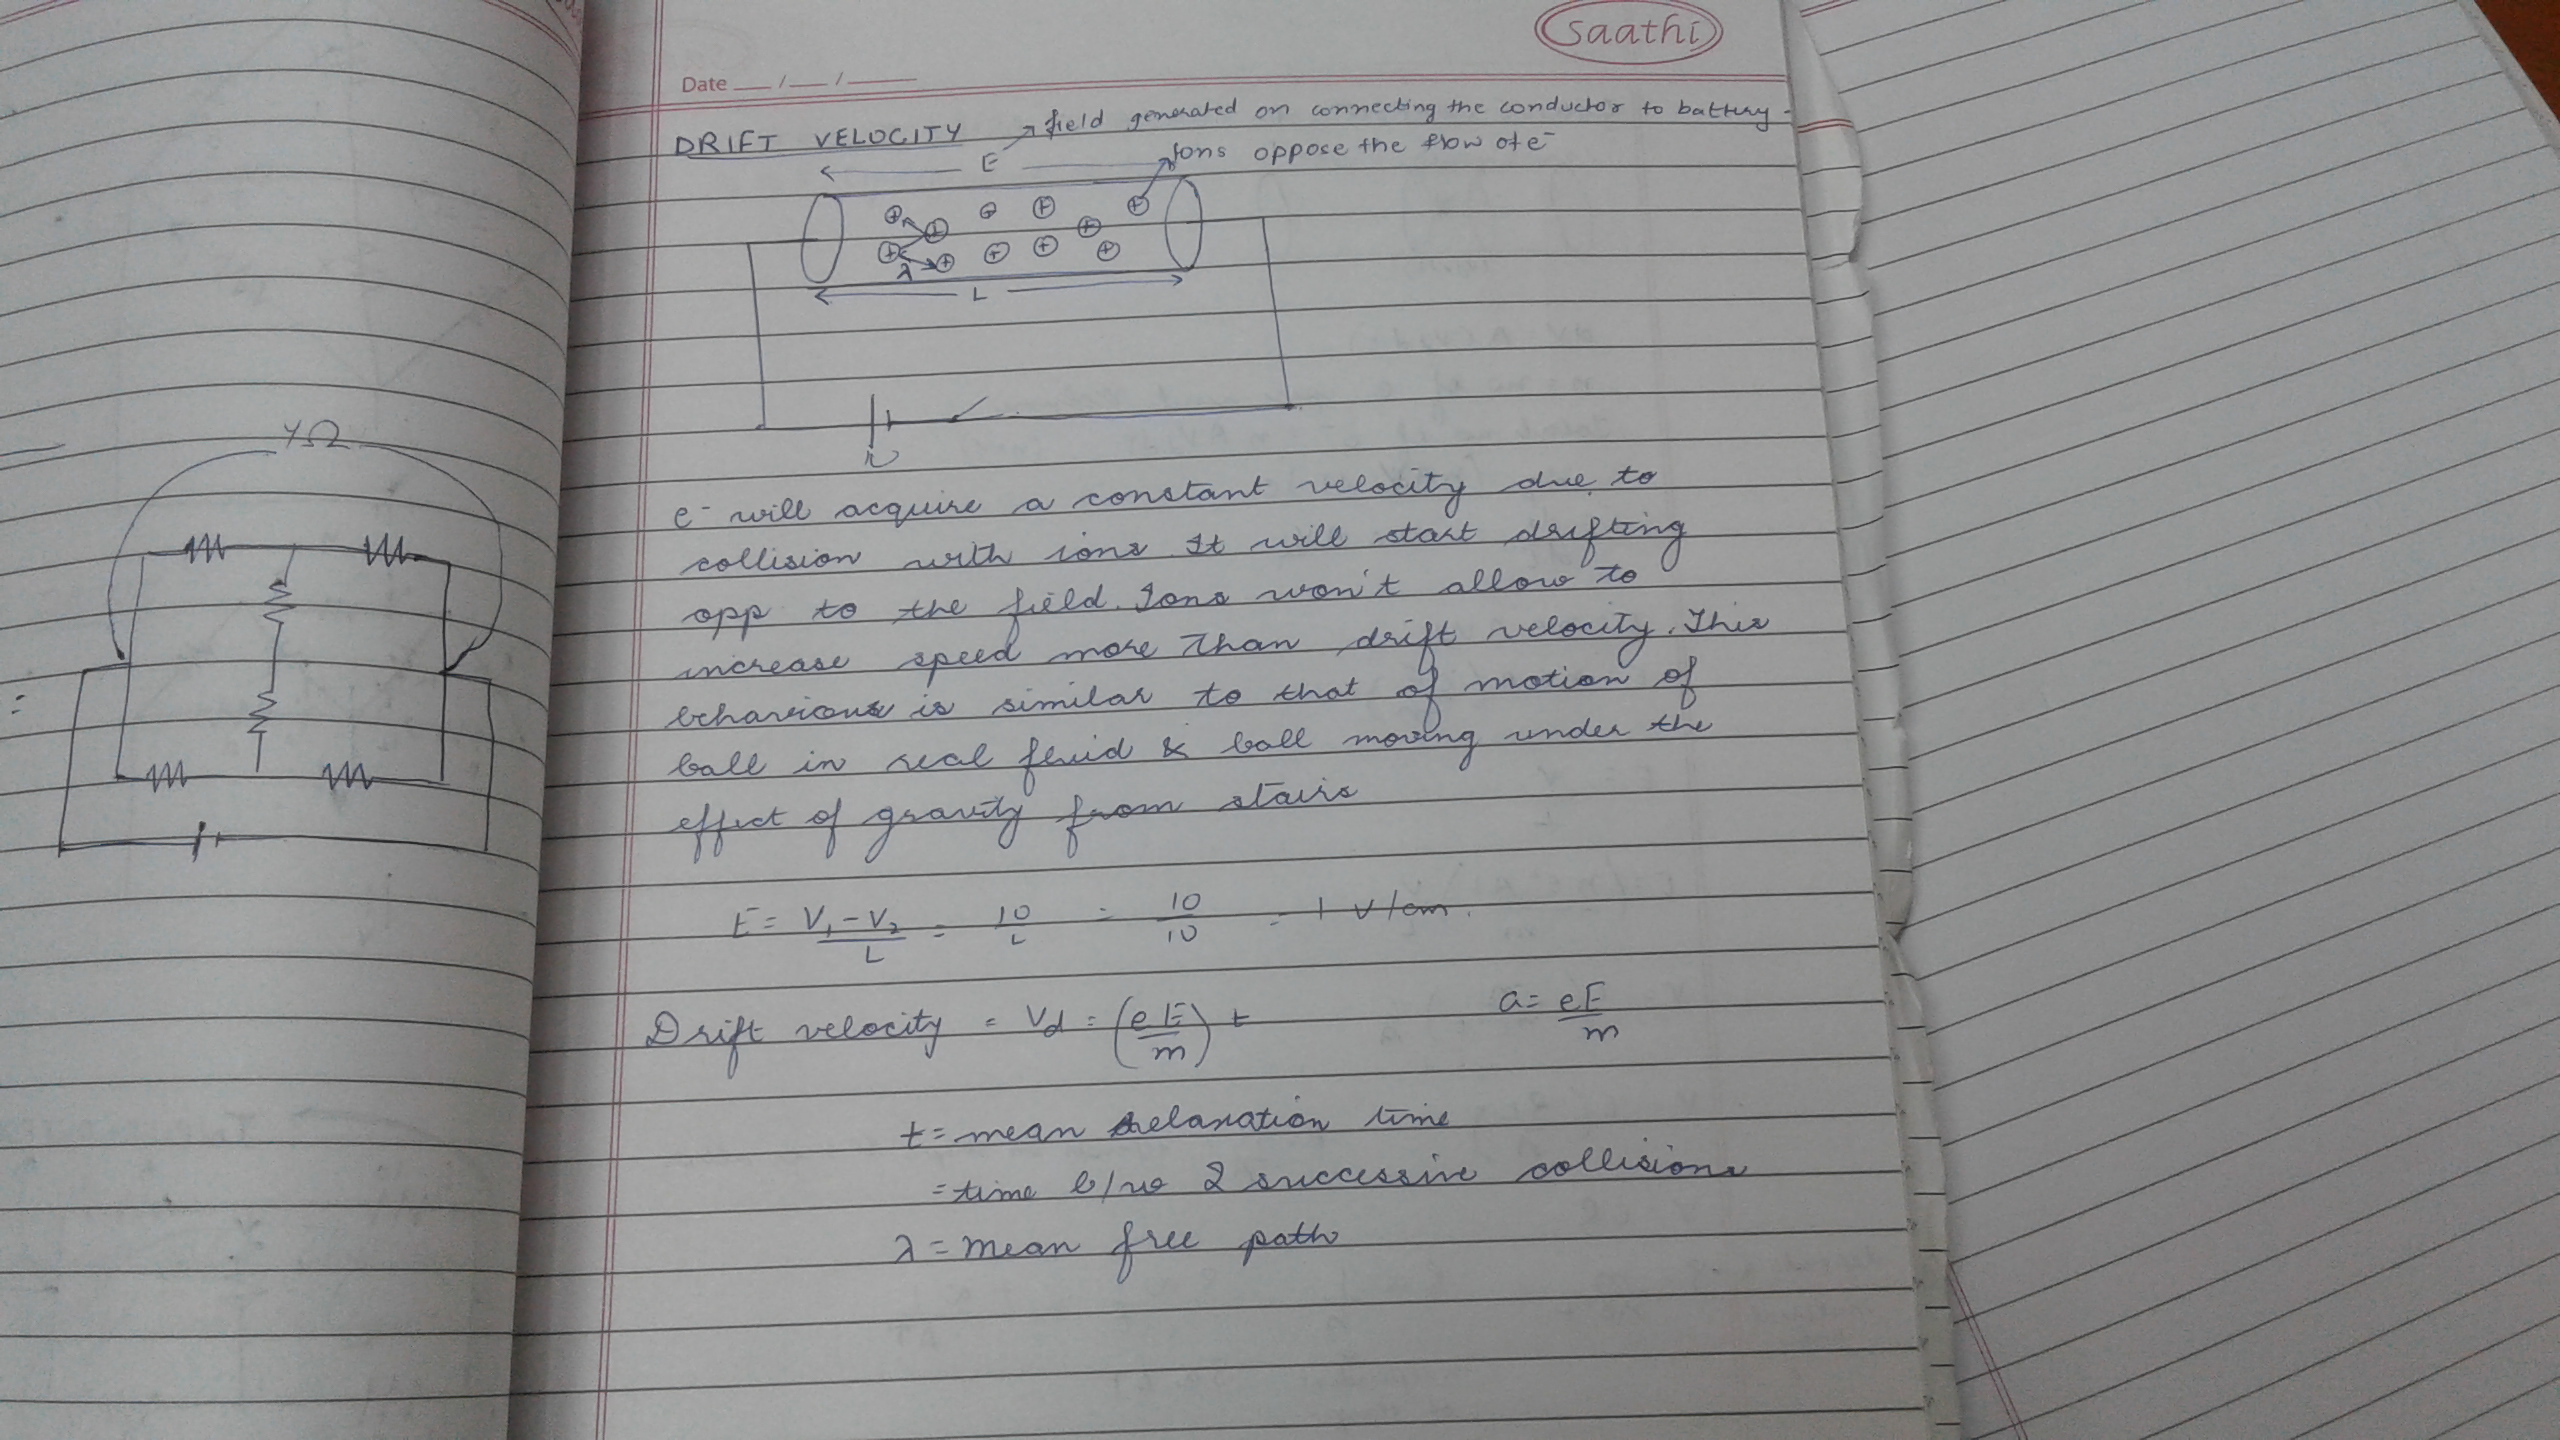 4Ω
Saathi
Date __/__/__
DRIFT VELOCITY → field generated on connecting the conductor to battery.
ions oppose the flow of e-
E
λ
L
e- will acquire a constant velocity due to
collision with ions. It will start drifting
opp to the field. Ions won't allow to
increase speed more than drift velocity. This
behaviour is similar to that of motion of
ball in real fluid & ball moving under the
effect of gravity from stairs
E = V1 - V2 / L = 10 / L = 10 / 10 = 1 V/cm.
a = eE / m
Drift velocity = Vd = (eE / m) t
t = mean relaxation time
= time b/w 2 successive collisions
λ = Mean free path